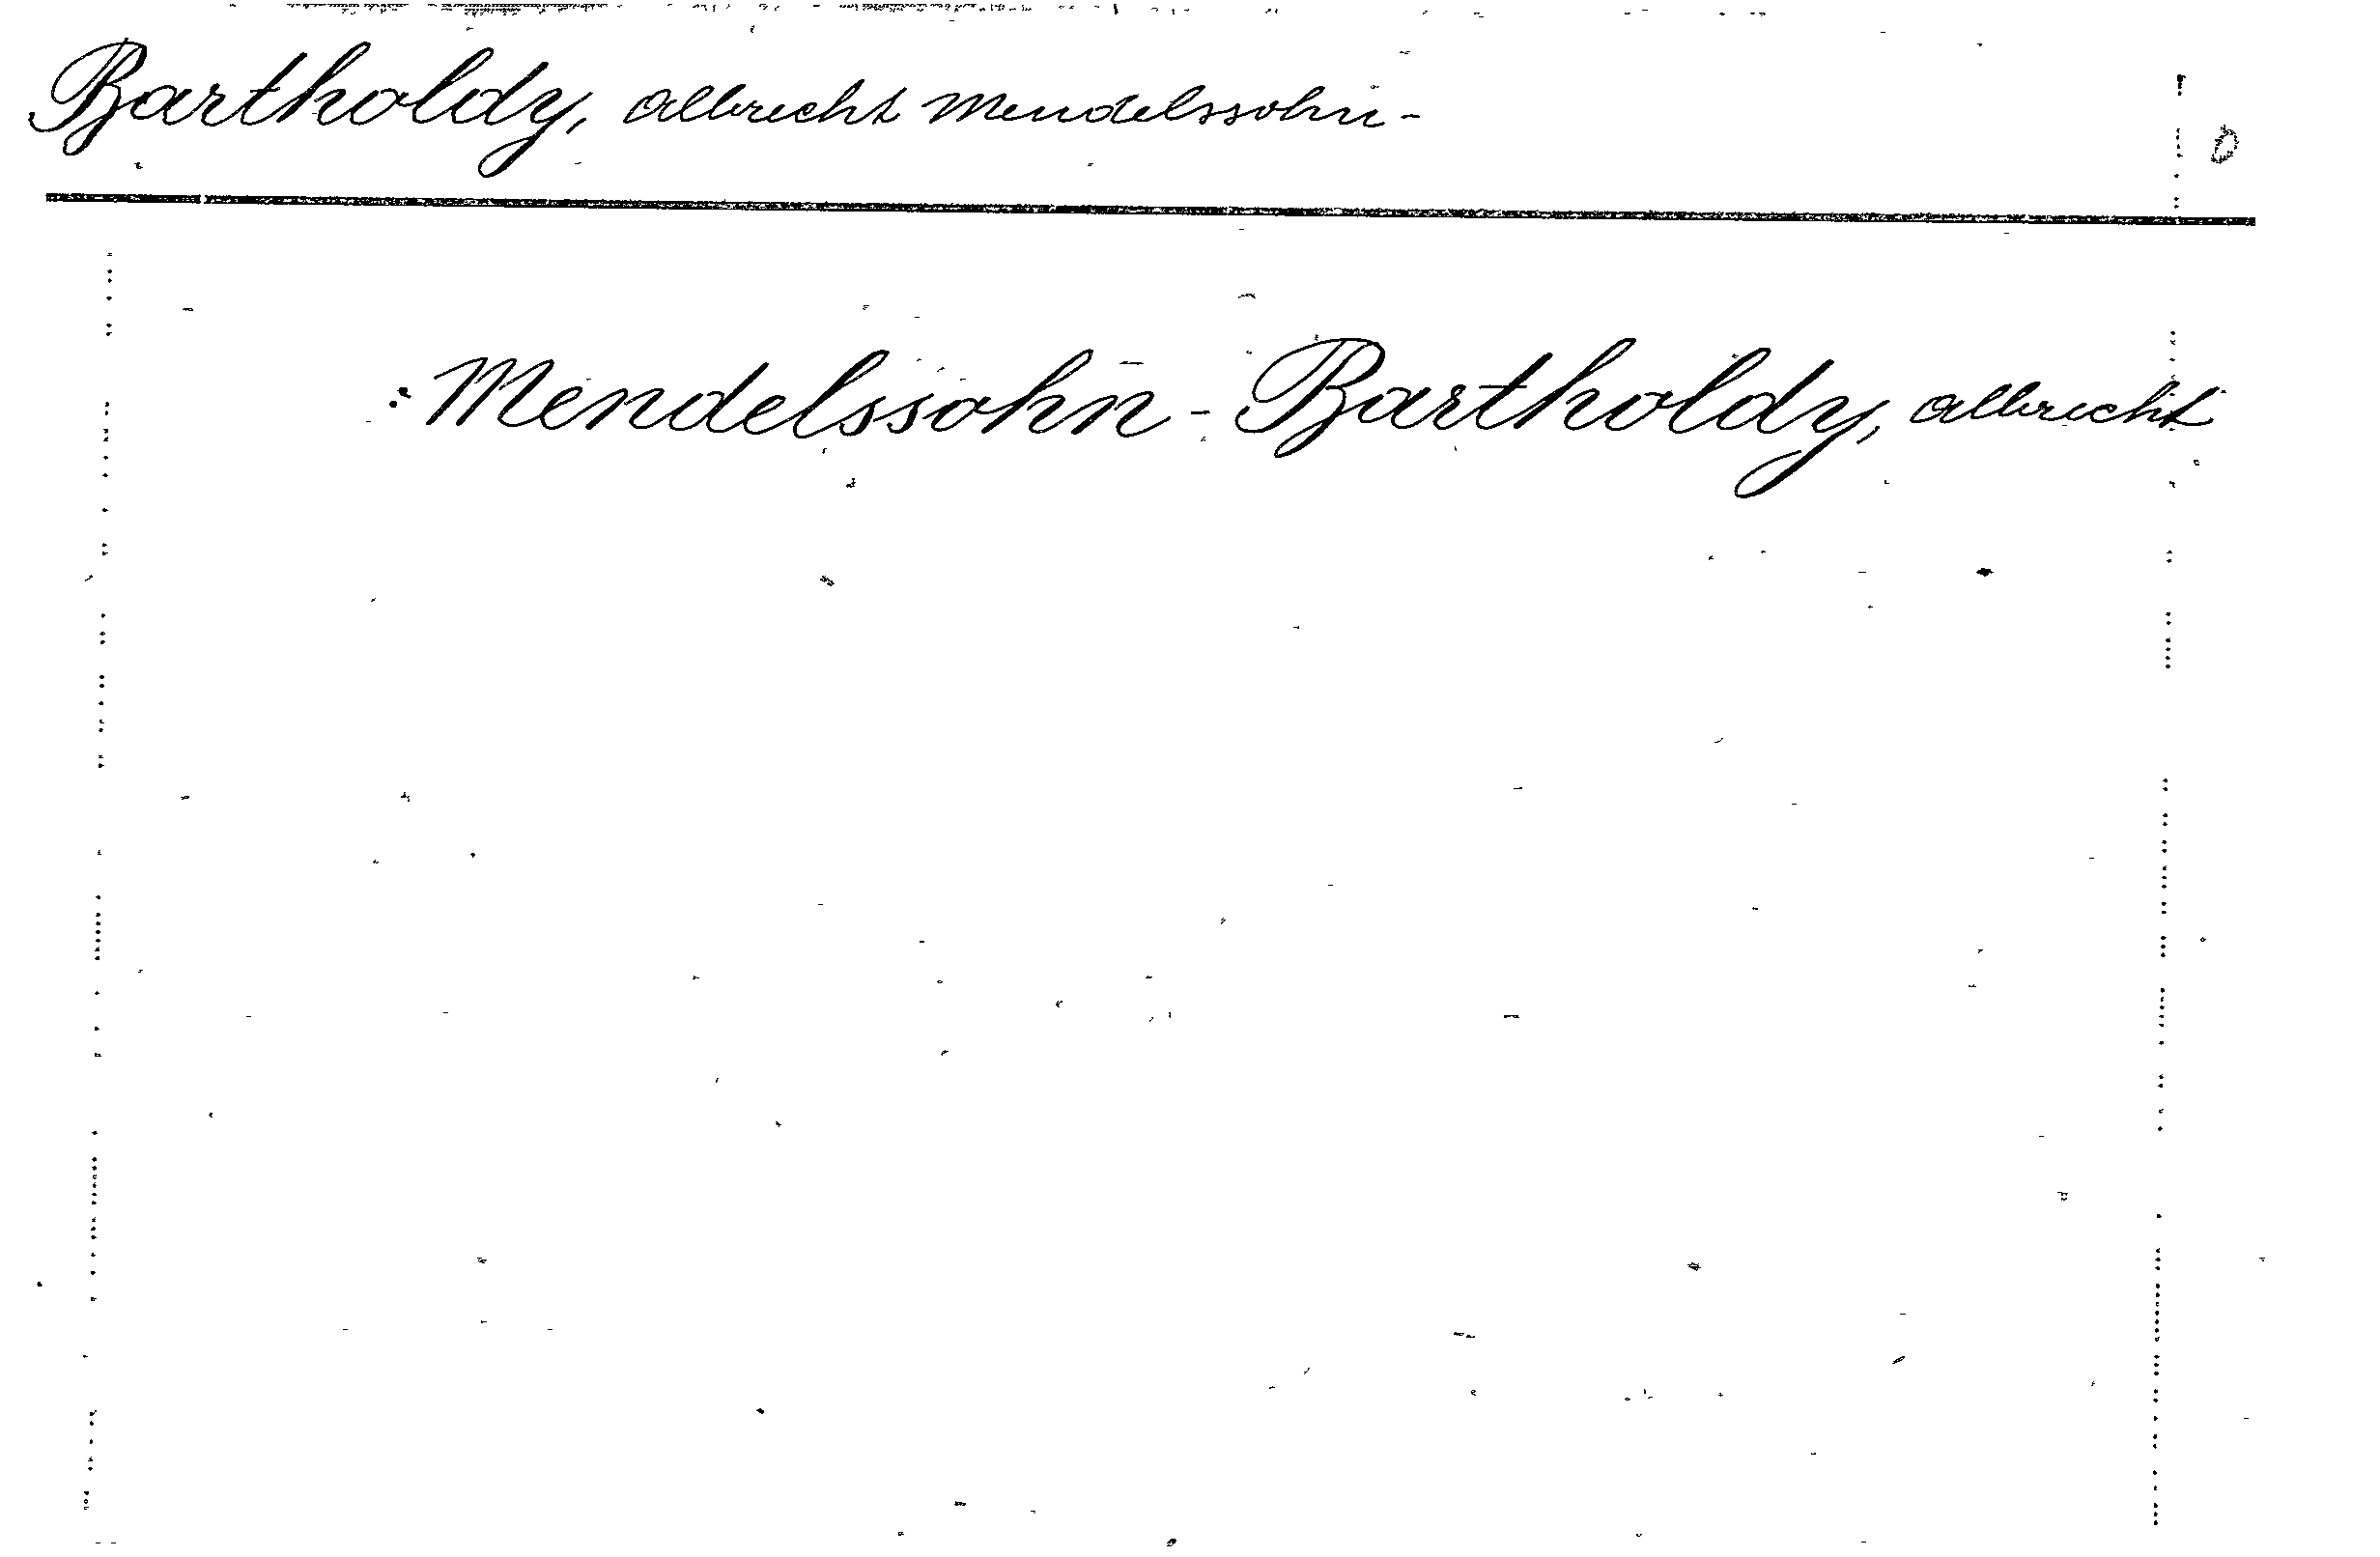 Bartholdy, Albrecht Mendelssohn-
: Mendelssohn-Bartholdy, Albrecht